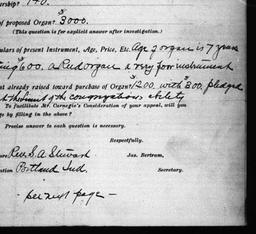 ership? 140.
of proposed Organ? $3000.
(This question is for explicit answer after investigation.)
ulars of present Instrument, Age, Price, Etc. Age of organ is 7 years
$600. a Reed organ a very fair instrument
nt already raised toward purchase of Organ? $1200 with $300 pledged
the limit of the congregations ability
To facilitate Mr. Carnegie's Consideration of your appeal, will you
ge by filling in the above?
Precise answer to each question is necessary.
Respectfully,
ure Rev. S. A. Stewart Jas. Bertram,
ation Portland Ind. Secretary.
- per next page -